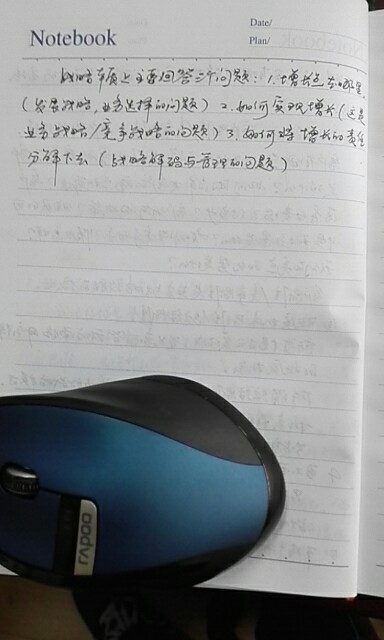 Date/
Notebook
Plan/
战略本质上主要回答三个问题：1.增长点在哪里
(发展战略,业务选择的问题) 2.如何实现增长(这是
业务战略/竞争战略的问题) 3.如何将增长的责任
分解下去(战略解码与管理的问题)
rapoo